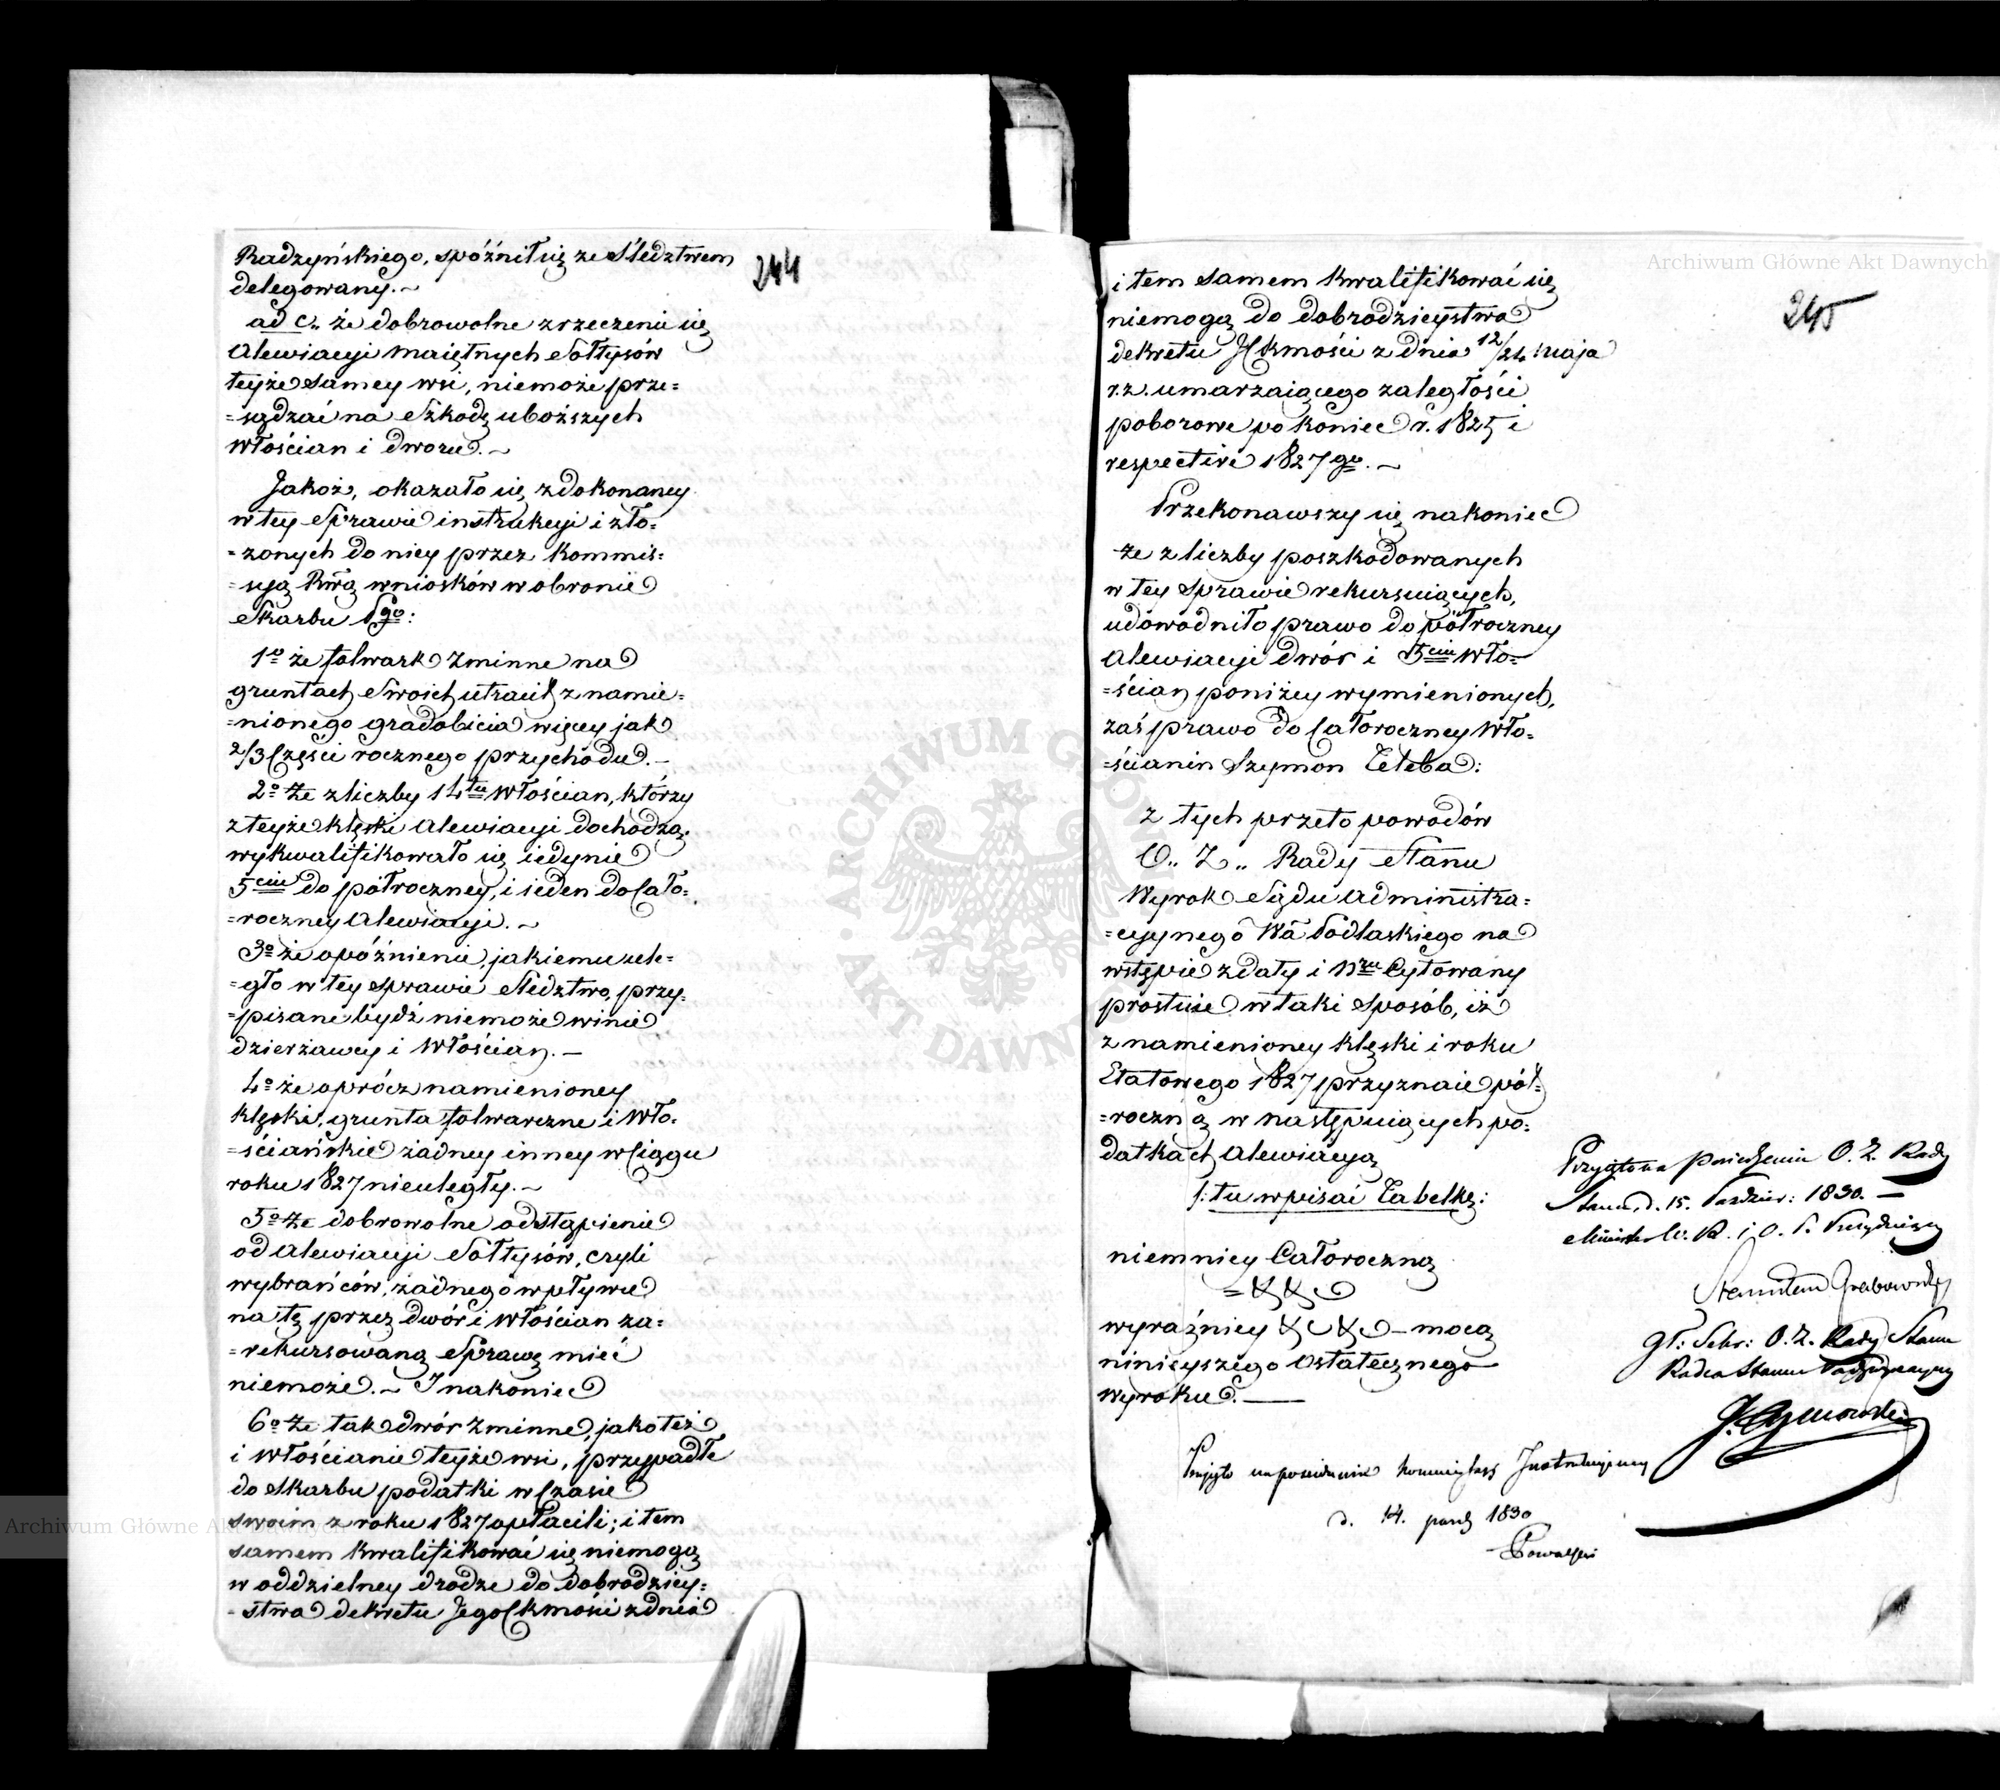 244
Radzyńskiego, spóźnił się ze Śledztwem
delegowany. ~
ad c. że dobrowolne zrzeczenie się
alewiacyi maiętnych Sołtysów
teyże samey wsi, niemoże prze=
=sądzać na Szkodę uboższych
Włościan i dworu. ~
Jakoż, okazało się z dokonaney
w tey Sprawie instrukcyi i zło=
=zonych do niey przez Kommis=
=syą Rwą wniosków w obronie
Skarbu Pgo:
1o że folwark Zminne na
gruntach Swoich utracił z namie=
=nionego gradobicia więcy jak
2/3 Części rocznego przychodu. –
2o że z liczby 14tu Włościan, którzy
z teyże klęski alewiacyi dochodzą,
wykwalifikowało się iedynie
5ciu do półroczney, i ieden do Cało=
=roczney alewiacyi. ~
3o że opóźnienie, jakiemu ule=
=gło w tey sprawie Śledztwo, przy=
=pisane bydź niemoże winie
dzierżawcy i Włościan. –
4o że oprócz namienioney
klęski, grunta folwarczne i Wło=
=ściańskie żadney inney w Ciągu
roku 1827 nieuległy. ~
5o że dobrowolne odstąpienie
od alewiacyi Sołtysów, czyli
wybrańców, żadnego wpływu
na tę przez dwór i Włościan za=
=rekursowaną Sprawę mieć
niemoże. ~ I nakoniec
6o że tak dwór Zminne, jako też
i Włościanie teyże wsi, przypadłe
do Skarbu podatki w Czasie
swoim z roku 1827 opłacili; i tem
samem kwalifikować się niemogą
w oddzielney drodze do dobrodziey=
=stwa dekretu Jego CKmości z dnia
Archiwum Główne Akt Dawnych
245
i tem samem kwalifikować się
niemogą do dobrodzieystwa
dekretu JCKmości z dnia 12/24 Maja
r. z. umarzaiącego zaległości
poborowe po koniec r. 1825 i
respective 1827go. ~
Przekonawszy się nakoniec
że z liczby poszkodowanych
w tey Sprawie rekursuiących,
udowodniło prawo do półroczney
alewiacyi dwór i 5ciu Wło=
=ścian poniżey wymienionych,
zaś prawo do Całoroczney Wło=
=ścianin Szymon Teleba:
z tych przeto powodów
O. Z. Rady Stanu
Wyrok Sądu administra=
=cyynego Wa Podlaskiego na
wstępie z daty i Nru Cytowany
prostuie w taki Sposób, iż
z namienioney klęski i roku
Etatowego 1827 przyznaie pół=
=roczną w następuiących po=
datkach alewiacyą
/: tu wpisać Tabelkę:
niemniey Całoroczną
wyraźniey – mocą
ninieyszego Ostatecznego
Wyroku. —
Przyięto na posiedzeniu Kommissyi Instrukcyiney
d. 14. paźdz 1830
Przyięto na posiedzeniu O. Z. Rady
Stanu, d. 15. Paździer: 1830. —
Minister W. R. i O. P. Prezyduiący
Stanisław Grabowski
Gł: Sekr: O. Z. Rady Stanu
Radca Stanu Nadzwyczayny
ARCHIWUM GŁÓWNE AKT DAWNYCH
Archiwum Główne Akt Dawnych